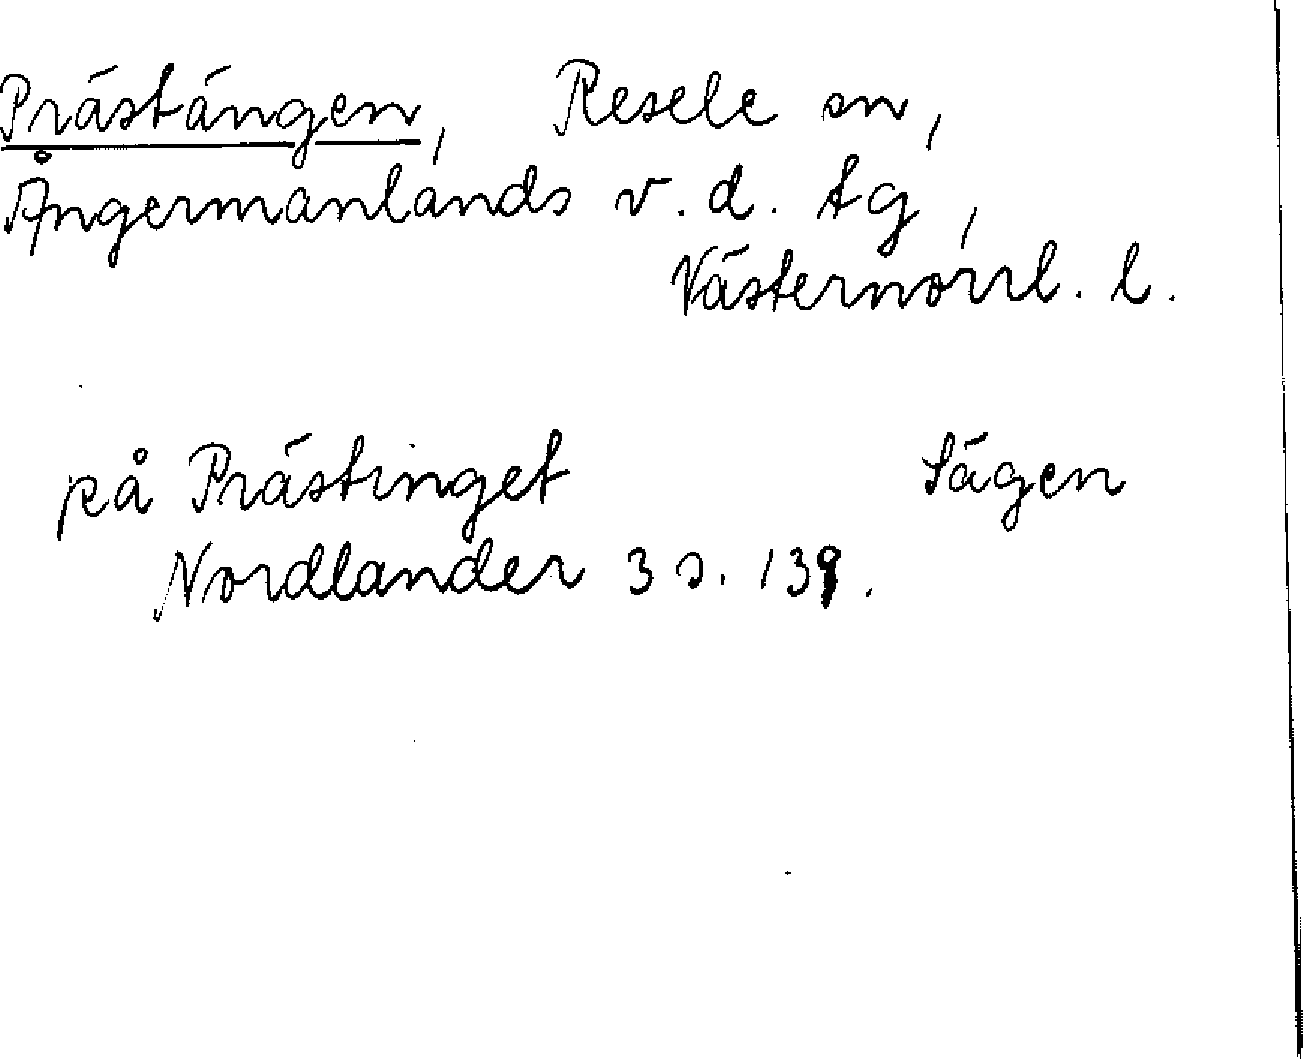 Prästängen, Resele sn,
Ångermanlands v. d. tg,
Västernorrl. l.
på Prästinget Sägen
Nordlander 3 s. 139.